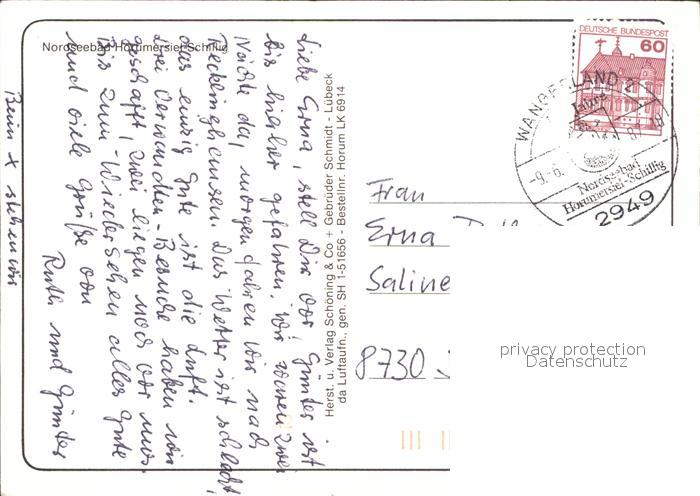 Nordseebad Horumersiel-Schillig
Liebe Erna, stell Dir vor, Günter ist
bis hierher gefahren. Wir waren zwei
Nächte da, morgen fahren wir nach
Recklinghausen. Das Wetter ist schlecht,
das einzig Gute ist die Luft.
Drei Verwandten-Besuche haben wir
geschafft, zwei liegen noch vor uns.
Bis zum Wiedersehen alles Gute
und viele Grüße von
Ruth und Günter
Beim x stehen wir
Herst. u. Verlag Schöning & Co + Gebrüder Schmidt - Lübeck
da Luftaufn., gen. SH 1-51656 - Bestellnr. Horum LK 6914
DEUTSCHE BUNDESPOST
60
WANGERLAND 2
-9.-6.
Nordseebad
Horumersiel-Schillig
2949
Frau
Erna
Saline
8730
privacy protection
Datenschutz